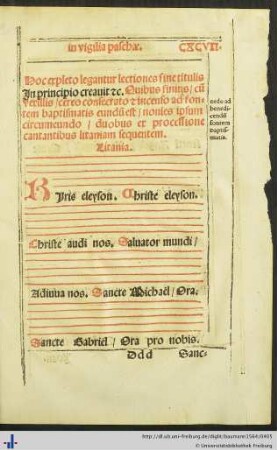 in vigilia paschae. CXCVII.
Hoc expleto legantur lectiones sine titulis
In principio creauit &c. Quibus finitis/ cū
vexillis/ cereo consecrato & incenso ad fon-
tem baptismatis eundū est/ nonies ipsum
circumeundo/ duobus ex processione
cantantibus litaniam sequentem.
Litania.
ad
benedi-
baptis-
matis.
Kyris eleyson. Christe eleyson.
Christe audi nos, Saluator mundi/
Adiuua nos. Sancte Michael/ Ora.
Sancte Gabriel/ Ora pro nobis.
Ddd Sanc-
http://dl.ub.uni-freiburg.de/diglit/baumann1564/0405
© Universitätsbibliothek Freiburg